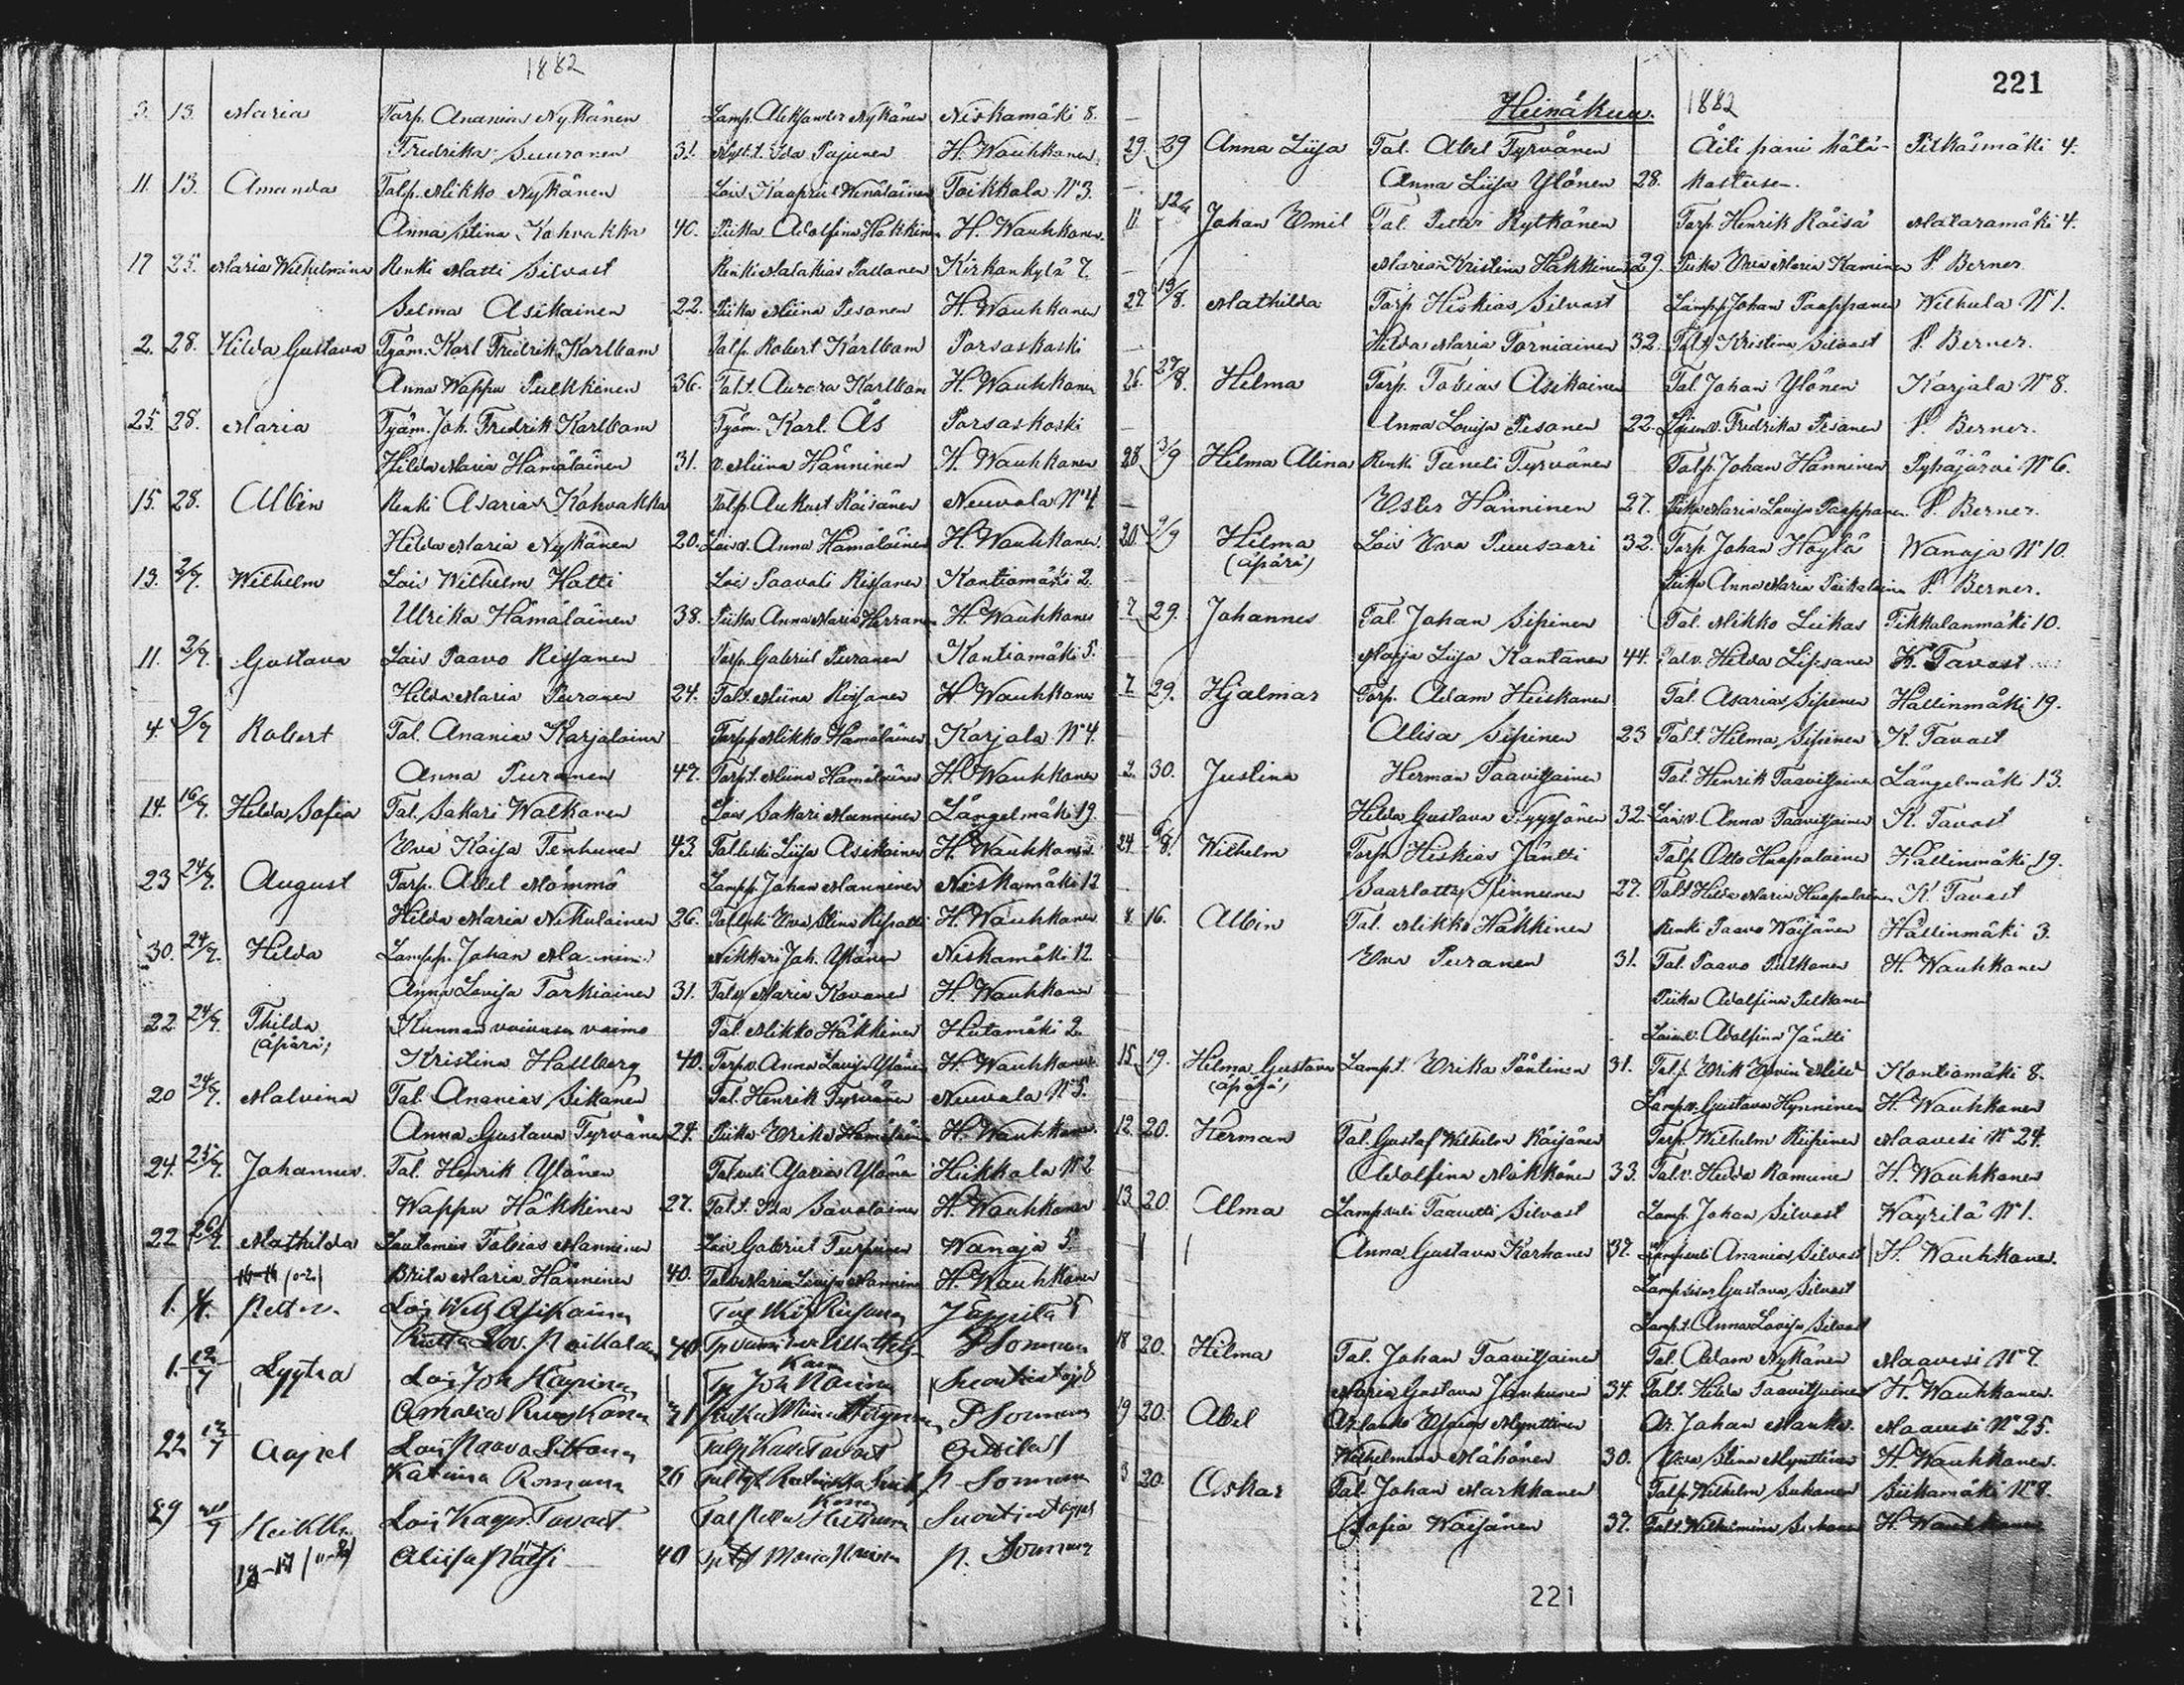 1882
3. 13. Maria Torp. Ananias Nykänen Lamp. Aleksander Nykänen Niskamäki 8.
Fredrika Suuronen 31. Myll.t. Ida Pajunen H. Wauhkonen.
11. 13. Amanda Talp. Mikko Nykänen Lois Kaapriel Wenäläinen Toikkala No 3.
Anna Stina Kohvakka 40. Piika Adolfina Häkkinen H. Wauhkonen.
17 25. Maria Wilhelmina Renki Matti Silvast Renki Malakias Pattanen Kirkonkylä 7.
Selma Asikainen 22. Piika Miina Pesonen H. Wauhkonen
2. 28. Hilda Gustava Työm. Karl Fredrik Karlbom Talp. Robert Karlbom Porsaskoski
Anna Wappu Pulkkinen 36. Tal.t. Aurora Karlbom H. Wauhkonen
25. 28. Maria Työm. Joh. Fredrik Karlbom Työm. Karl Ås Porsaskoski
Hilda Maria Hämäläinen 31. v. Miina Hänninen H. Wauhkonen
15. 28. Albin Renki Asarias Kohvakka Talp. Aukust Räisänen Neuvola No 4
Hilda Maria Nykänen 20. Lois.v. Anna Hämäläinen H. Wauhkonen.
13. 2/7. Wilhelm Lois Wilhelm Hatti Lois Paavali Rissanen Kontiomäki 2.
Ulrika Hämäläinen 38. Piika Anna Maria Herranen H. Wauhkonen
11. 2/7. Gustava Lois Paavo Rissanen Torp. Gabriel Puranen Kontiomäki 5.
Hilda Maria Puranen 24. Tal.t. Miina Rissanen H. Wauhkonen
4. 9/7 Robert Tal. Ananias Karjalainen Torp.p. Mikko Hämäläinen Karjala No 4.
Anna Puranen 47. Torp.t. Miina Hämäläinen H. Wauhkonen
14. 16/7. Hilda Sofia Tal. Sakari Walkonen Lois Sakari Manninen Längelmäki 19.
Eva Kaisa Tenhunen 43. Tal.leski Liisa Asikainen H. Wauhkonen.
23 24/7. August Torp. Abel Mömmö Lamp.p. Johan Manninen Niskamäki 12
Hilda Maria Nikulainen 26. Tal.leski Eva Stina H. Wauhkonen
30. 24/7. Hilda Lamp.p. Johan Nikkari Joh. Ylönen Niskamäki 12.
Anna Lovisa Torkiainen 31. Tal.v. Maria Kovanen H. Wauhkonen
22 24/7. Thilda Kunnan vaivasen vaimo Tal. Mikko Häkkinen Hiitomäki 2.
(äpärä) Kristina Hallberg 40. Torp.v. Anna Lovisa Ylönen H. Wauhkonen
20 24/7. Malvina Tal. Ananias Sikanen Tal. Henrik Tyrväinen Neuvola No 5.
Anna Gustava Tyrväinen 24. Piika Erika Hämäläinen H. Wauhkonen.
24. 25/7. Johannes. Tal. Henrik Ylönen Tal.veli Ylönen Hiikkala No 2
Wappu Häkkinen 27. Tal.t. Ida Savolainen H. Wauhkonen
22 26/7. Mathilda Lautamies Tobias Manninen Lois Gabriel Turpeinen Wanaja 5.
Brita Maria Hänninen 40. Tal.v. Maria Lovisa Manninen H. Wauhkonen
1. Petter. Loi Jäppilä
40
1. Lyytia Loi Joh.
Amalia P. Sormunen
22 Loi Paavo
Katriina Romanen 26 P. Sormunen
29 Heikki Loi Kasper Tavast
40 P. Sormunen
221
Heinäkuu. 1882
29. 29 Anna Liisa Tal. Abel Tyrvänen Äiti pani hätä- Pitkäsmäki 4.
Anna Liisa Ylönen 28. kasteesen.
11 Johan Emil Tal. Petter Rytkönen Torp. Henrik Röisä Mataramäki 4.
Maria Kristina Häkkinen 29. Piika Eva Maria Kaminen P. Berner
27. 13/8. Mathilda Torp Hiskias Silvast Lamp.p Johan Paappanen Wilhula No 1.
Hilda Maria Torniainen 32. Tal.t. Kristina Silvast P. Berner.
26. 27/8. Hilma Torp. Tobias Asikainen Tal. Johan Ylönen Karjala No 8.
Anna Lovisa Pesonen 22. Lois.v. Fredrika Pesonen P. Berner.
28 3/9 Hilma Alina Renki Taneli Tyrvänen Talp. Johan Hänninen Pyhäjärvi No 6.
Ester Hänninen 27. Piika Maria Lovisa Paappanen P. Berner.
20 9/9 Hilma Lois Eva Puusaari 32. Torp. Johan Höylä Wanaja No 10.
(äpärä) Piika Anna Maria Paikalainen P. Berner.
7. 29. Johannes Tal. Johan Sipinen Tal. Mikko Liikas Tikkalanmäki 10.
Maija Liisa Kantanen 44. Tal.v. Hilda Lipsanen K. Tavast
7. 29. Hjalmar Torp. Adam Hiiskanen Tal. Asarias Sipinen Hällinmäki 19.
Alisa Sipinen 23 Tal.t. Hilma Sipinen K. Tavast
2. 30. Justina Herman Taavitsainen Tal. Henrik Taavitsainen Längelmäki 13.
Hilda Gustava Kyyrönen 32. Lois.v. Anna Taavitsainen K. Tavast
24 6/8. Wilhelm Torp. Hiskias Jäntti Talp. Otto Huopalainen Hällinmäki 19.
Saarlotta Kinnunen 27. Tal.t Hilda Maria Huopalainen K. Tavast
8. 16. Albin Tal. Mikko Häkkinen Renki Paavo Wäisänen Hällinmäki 3.
Eva Puranen 31. Tal. Paavo Pulkonen H. Wauhkonen
Piika Adolfina Pelkonen
Lois.v. Adolfina Jäntti
15. 19. Hilma Gustava Lamp.t. Erika Pöntinen 31. Talp. Erik Kontiomäki 8.
(äpärä) Lamp.v. Gustava Hynninen H. Wauhkonen
12 20. Herman Tal. Gustaf Wilhelm Räisänen Torp. Wilhelm Riipinen Maavesi No 24.
Adolfina Mökkönen 33. Tal.v. Hedda Romunen H. Wauhkonen
13 20. Alma Lamp.veli Taavetti Silvast Lamp. Johan Silvast Wäyrilä No 1.
Anna Gustava Korhonen 37. Lamp.veli Ananias Silvast H. Wauhkonen.
Lamp.sisar Gustava Silvast
Lamp.t. Anna Lovisa Silvast
18 20. Hilma Tal. Johan Taavitsainen Tal. Adam Nykänen Maavesi No 7.
Maria Gustava Janhunen 34. Tal.t. Hilda Taavitsainen H. Wauhkonen.
19 20. Abel Esaias Mynttinen Johan Manks. Maavesi No 25.
Wilhelmina Mähönen 30. Eva Stina Mynttinen H. Wauhkonen.
3 20. Oskar Tal. Johan Markkanen Talp. Wilhelm Suhonen Siikamäki No 8.
Sofia Wäisänen 37. Tal.t. Wilhelmina Suhonen H. Wauhkonen
221